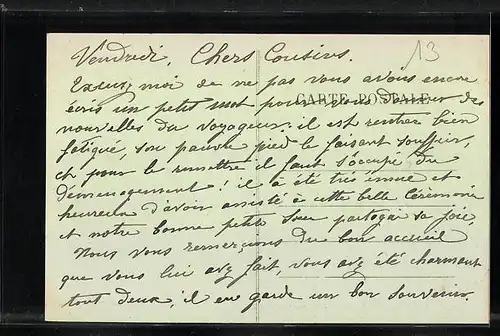 13
Vendredi, Chers Cousins.
Excusez moi de ne pas vous avoir encore
écris un petit mot pour vous donner des
CARTE POSTALE
nouvelles du voyageur: il est rentré bien
fatigué, son pauvre pied le faisant souffrir,
et pour le remettre il faut s'occuper du
déménagement! il a été très émue et
heureux d'avoir assisté à cette belle Cérémonie
et notre bonne petite Sœur partager sa joie,
Nous vous remerçions du bon accueil
que vous lui avez fait, vous avez été charmant
tout deux, il en garde un bon souvenir.